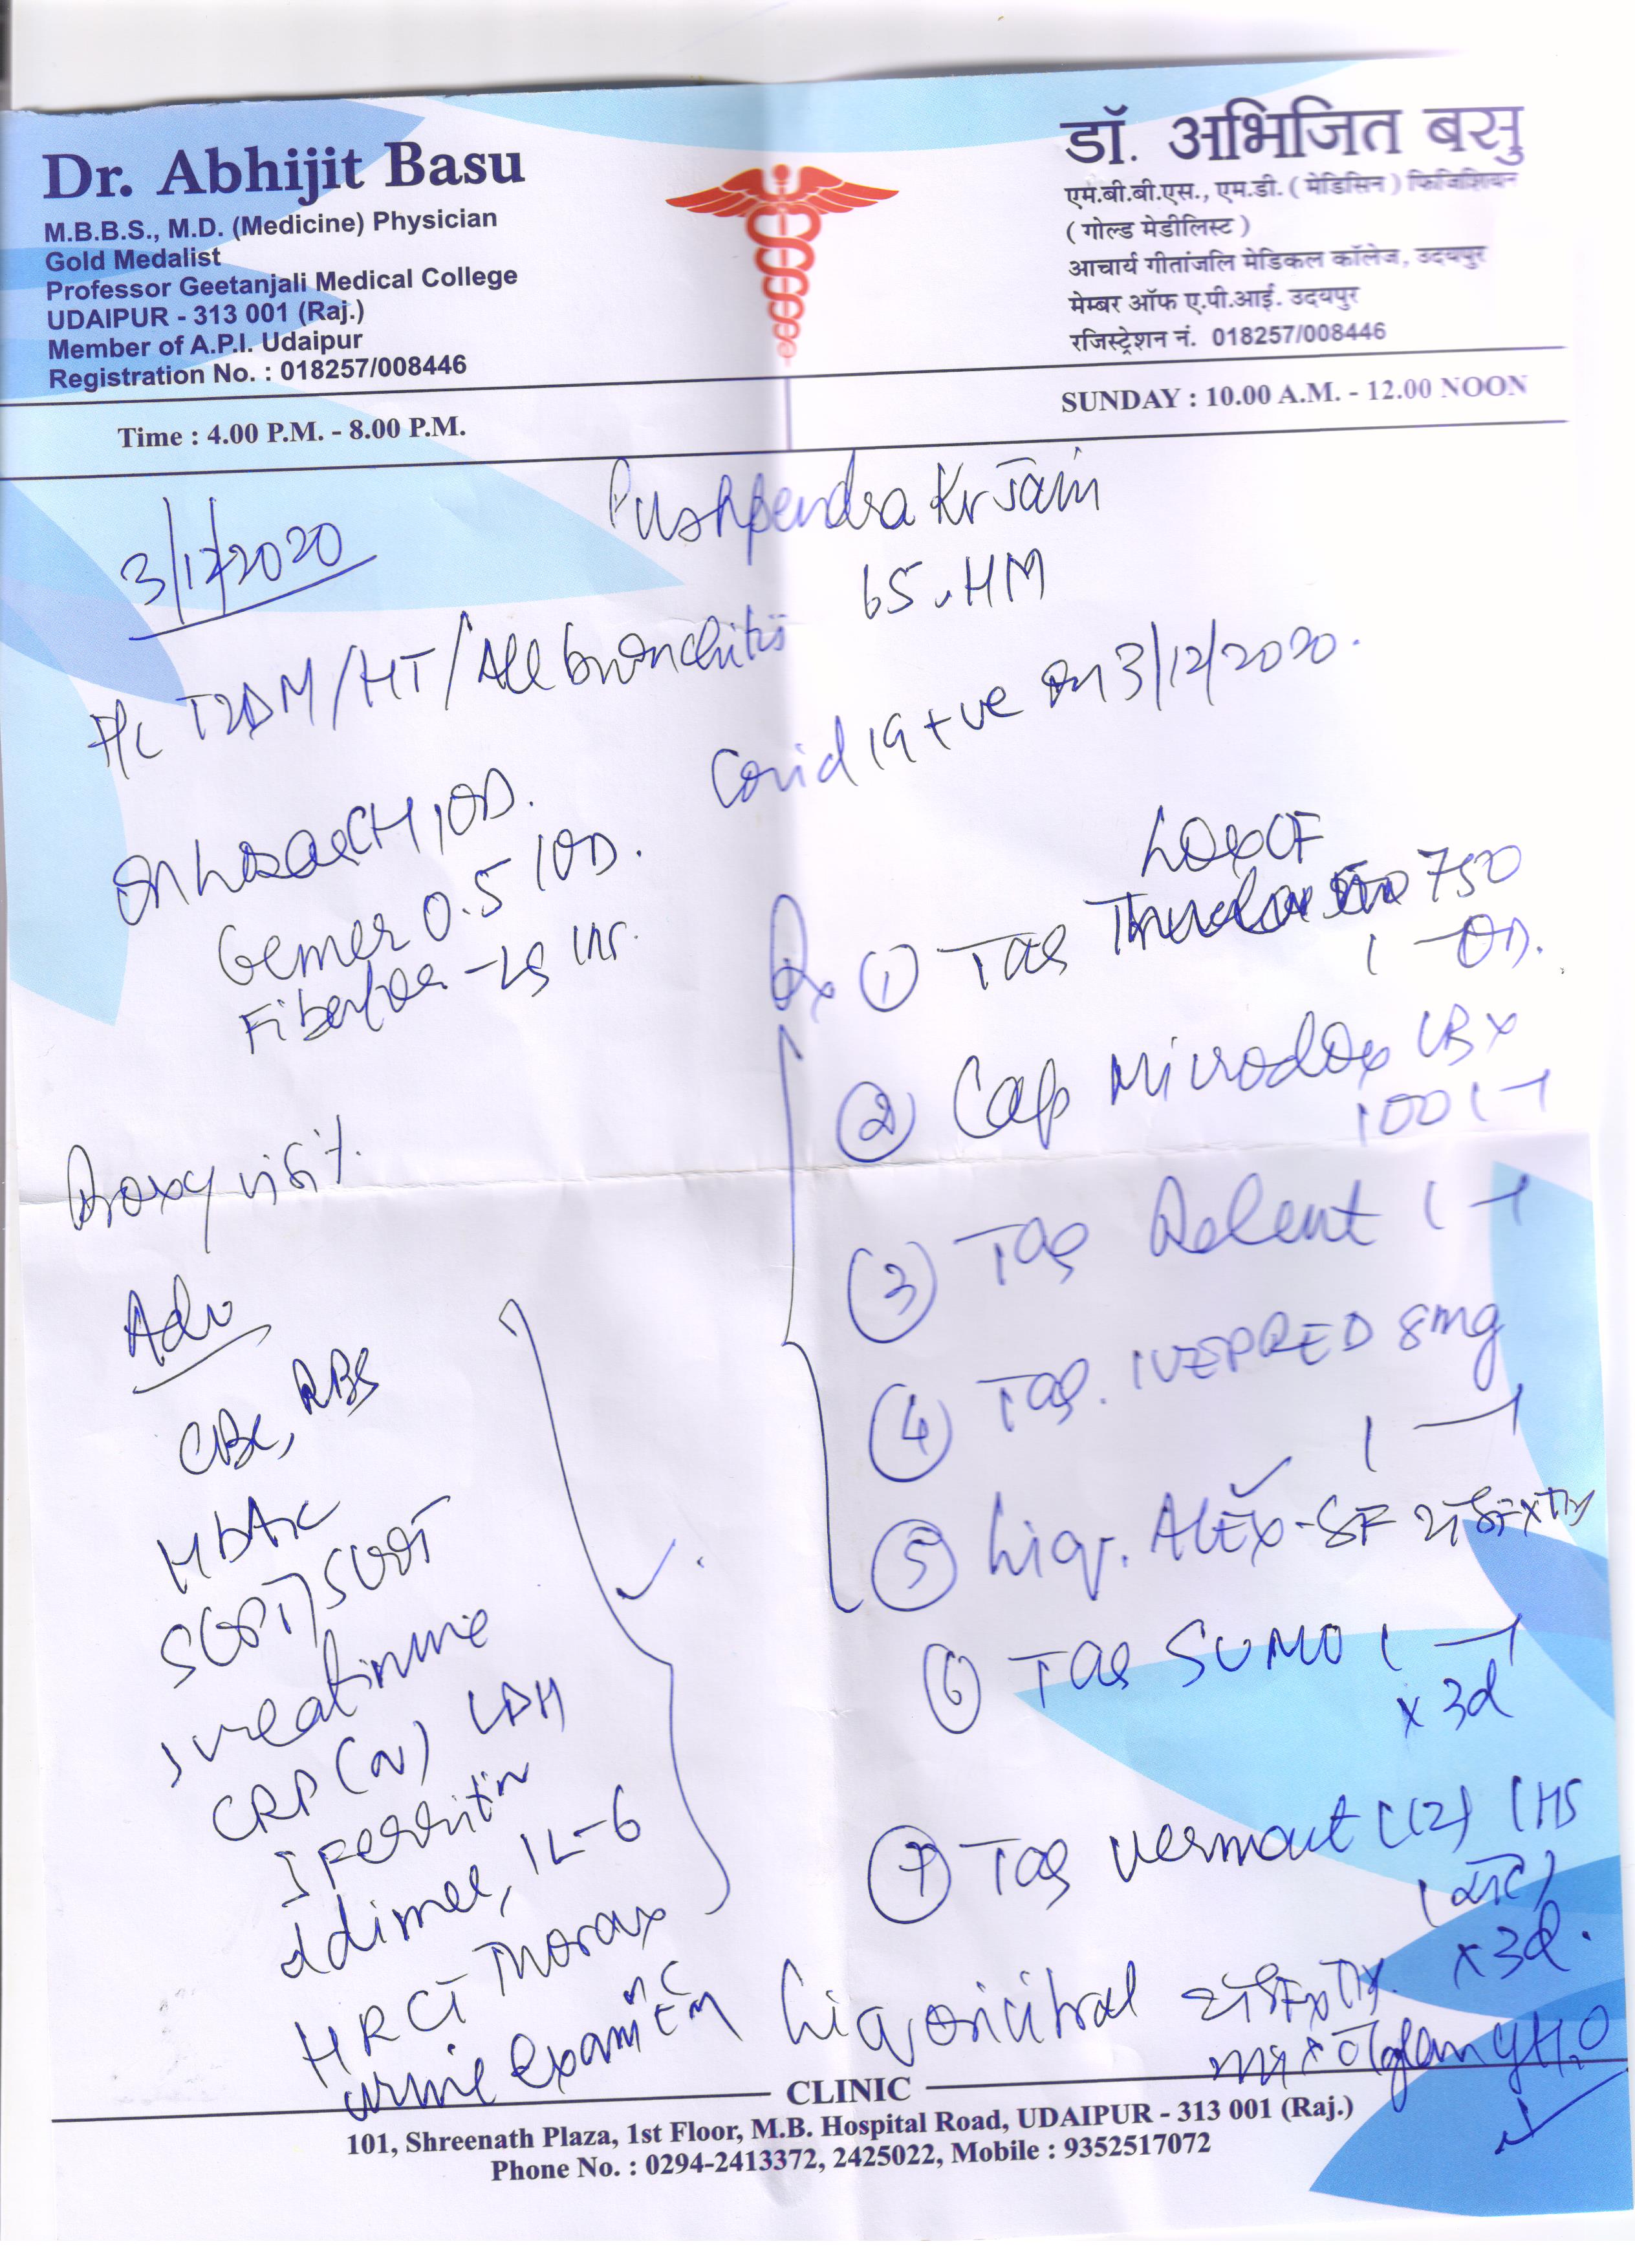 Dr. Abhijit Basu
M.B.B.S., M.D. (Medicine) Physician
Gold Medalist
Professor Geetanjali Medical College
UDAIPUR - 313 001 (Raj.)
Member of A.P.I. Udaipur
Registration No. : 018257/008446
डॉ. अभिजित बसु
एम.बी.बी.एस., एम.डी. ( मेडिसिन ) फिजिशियन
( गोल्ड मेडीलिस्ट )
आचार्य गीतांजलि मेडिकल कॉलेज, उदयपुर
मेम्बर ऑफ ए.पी.आई. उदयपुर
रजिस्ट्रेशन नं. 018257/008446
Time : 4.00 P.M. - 8.00 P.M.
SUNDAY : 10.00 A.M. - 12.00 NOON
Pushpendra Kr Jain
3/12/2020
65
T2DM/HT/All bronchitis
Covid 19 +ve on 3/12/2020.
On H 1OD.
Gemer 0.5 1OD.
Proxy visit.
Adv
CBC, RBS
SGPT/SGOT
S creatinine
CRP (N) LDH
S Ferritin
ddimer, IL-6
HRCT Thorax
urine Exam
Rx ① Tab LOXOF 750
1 - OD.
② Cap Microdox LBX
100 1-1
③ Tab Relent 1-1
④ Tab. IVEPRED 8mg
1-1
⑤ Liq. ALEX-SF
⑥ Tab SUMO 1-1
x 3d
⑦ Tab (12) 1HS
x 3d.
Liq oricitral
CLINIC
101, Shreenath Plaza, 1st Floor, M.B. Hospital Road, UDAIPUR - 313 001 (Raj.)
Phone No. : 0294-2413372, 2425022, Mobile : 9352517072